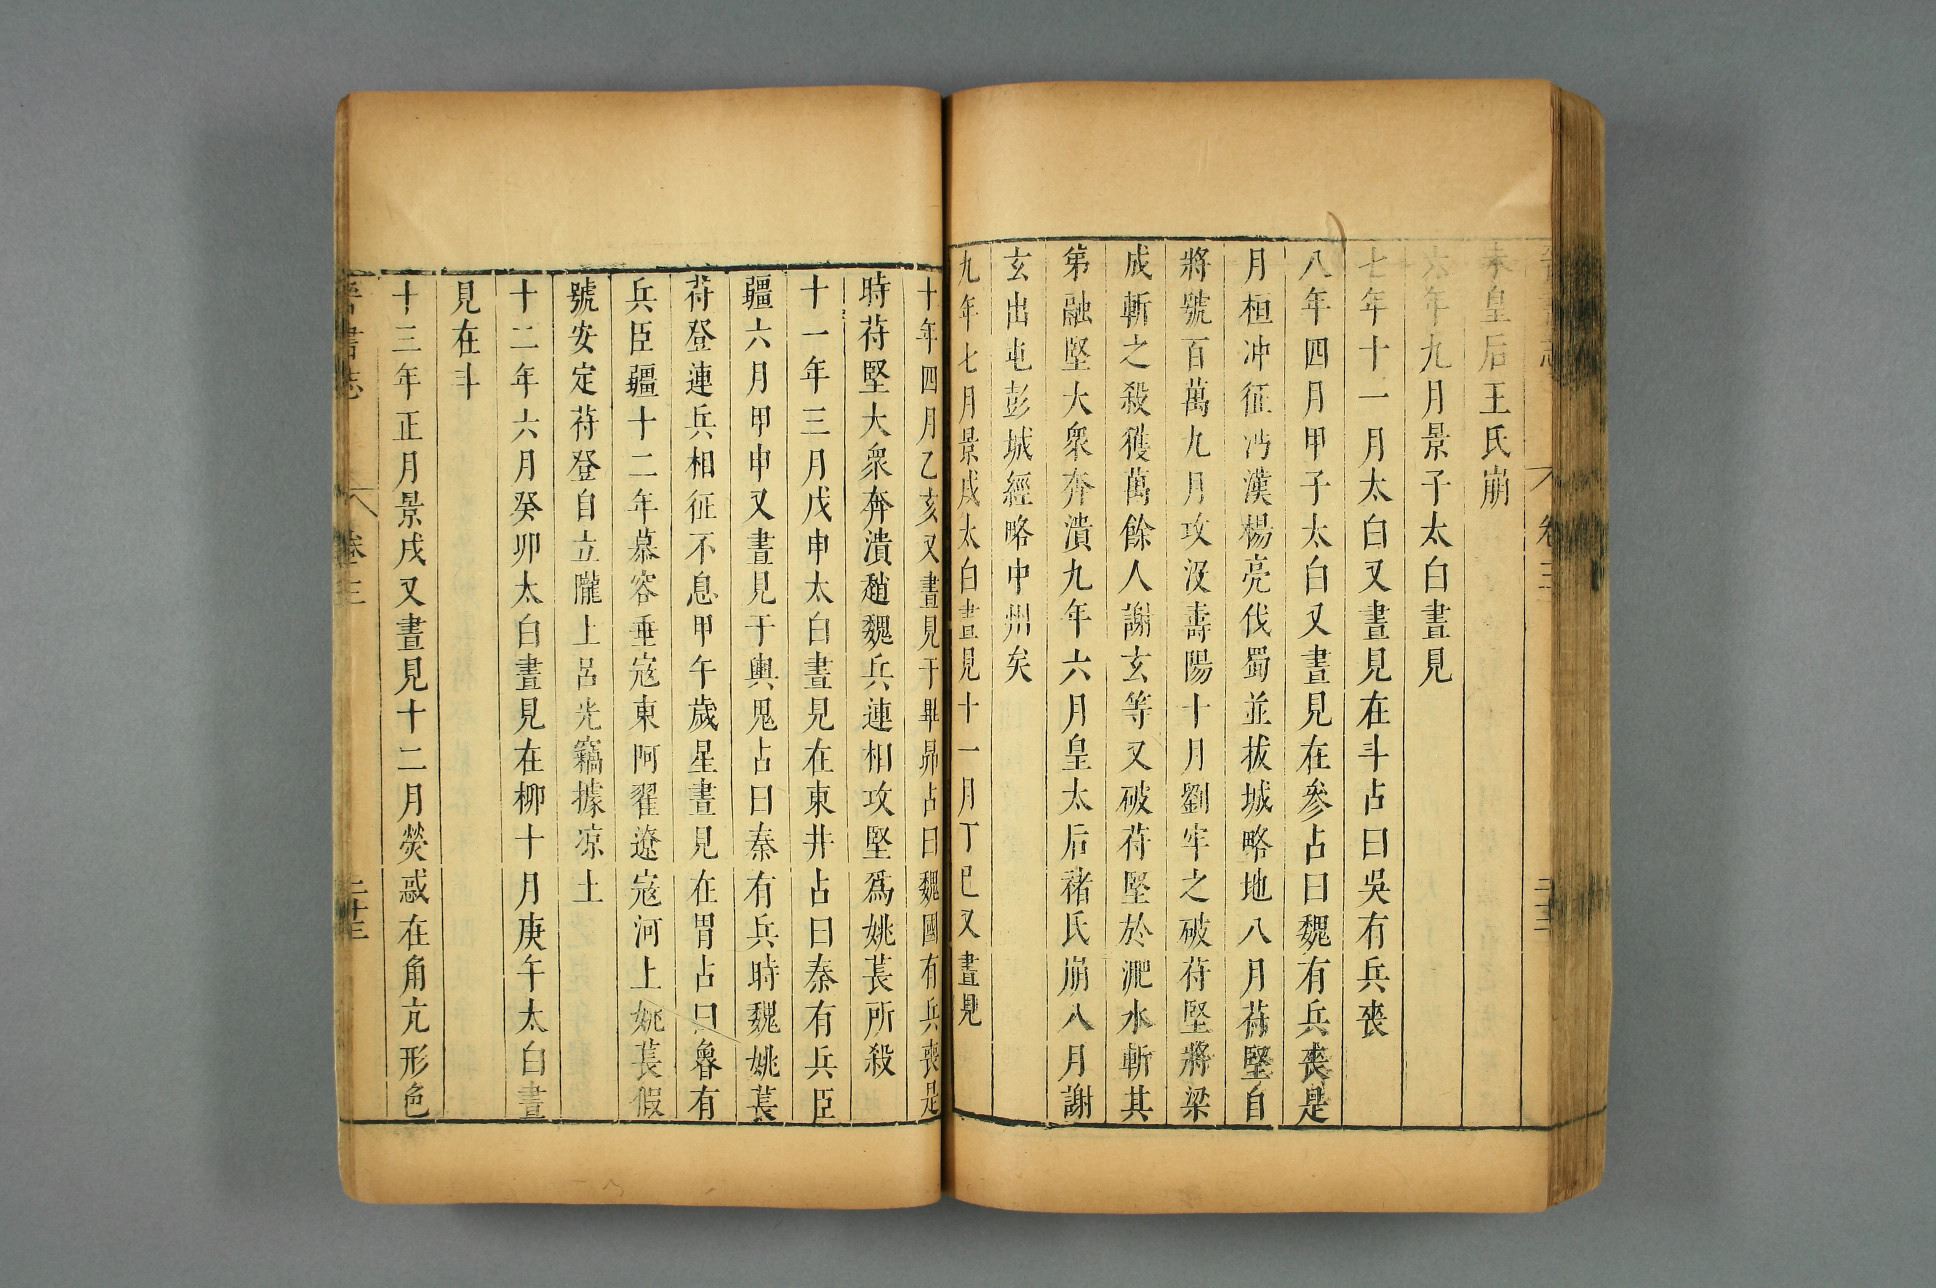 晉書志 卷三 二十二
末皇后王氏崩
六年九月景子太白晝見
七年十一月太白又晝見在斗占曰吳有兵喪
八年四月甲子太白又晝見在參占曰魏有兵喪是
月桓冲征沔漢楊亮伐蜀並拔城略地八月苻堅自
將號百萬九月攻没壽陽十月劉牢之破苻堅將梁
成斬之殺獲萬餘人謝玄等又破苻堅於淝水斬其
第融堅大衆奔潰九年六月皇太后褚氏崩八月謝
玄出屯彭城經略中州矣
九年七月景戌太白晝見十一月丁巳又晝見
十年四月乙亥又晝見于畢昴占曰魏國有兵喪是
時苻堅大衆奔潰趙魏兵連相攻堅爲姚萇所殺
十一年三月戊申太白晝見在東井占曰秦有兵臣
疆六月甲申又晝見于輿鬼占曰秦有兵時魏姚萇
苻登連兵相征不息甲午歲星晝見在胃占曰魯有
兵臣疆十二年慕容垂寇東阿翟遼寇河上姚萇假
號安定苻登自立隴上呂光竊據凉土
十二年六月癸卯太白晝見在柳十月庚午太白晝
見在斗
十三年正月景戌又晝見十二月熒惑在角亢形色
晉書志 卷三 二十三